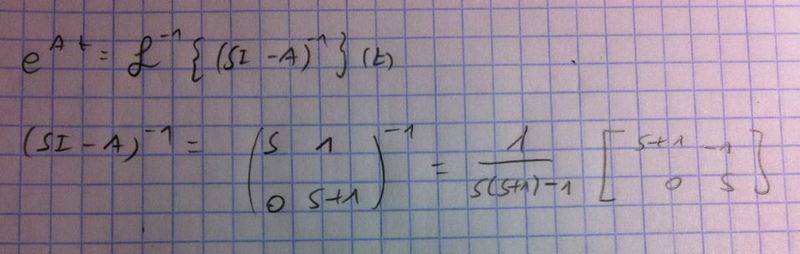 e^{At} = ℒ^{-1} { (SI - A)^{-1} } (t)
(SI - A)^{-1} = \begin{pmatrix} S & 1 \\ 0 & S+1 \end{pmatrix}^{-1} = \frac{1}{S(S+1)-1} \begin{bmatrix} S+1 & -1 \\ 0 & S \end{bmatrix}